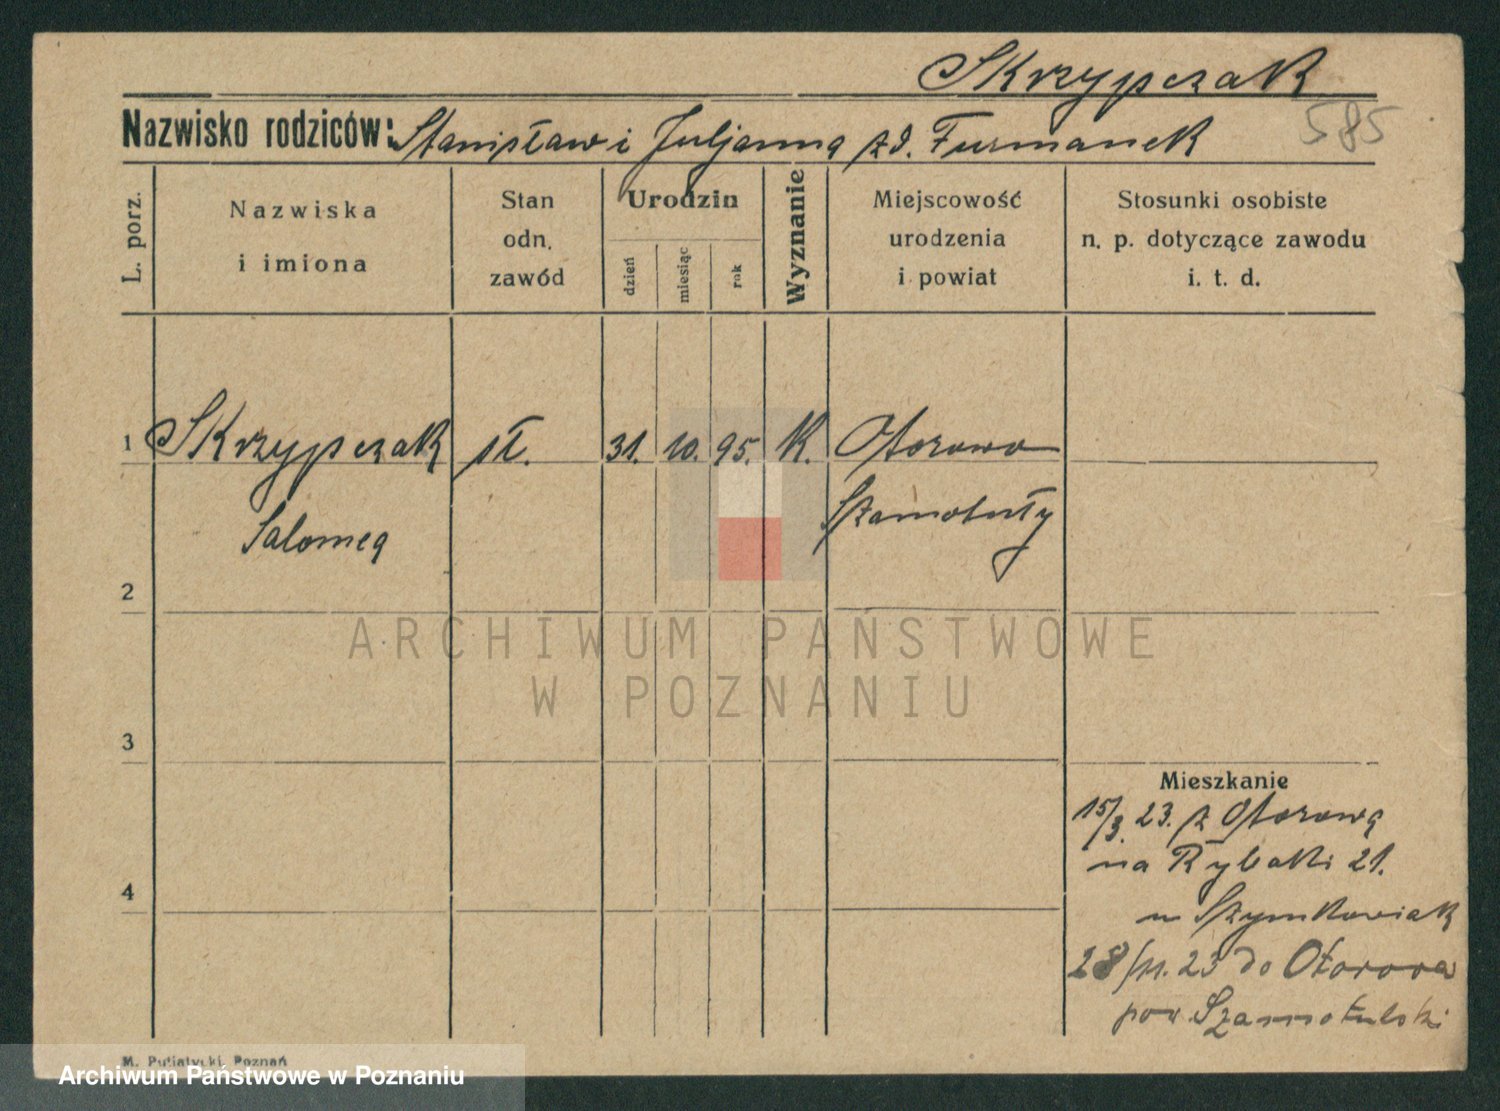 Skrzypczak
585
Nazwisko rodziców: Stanisław i Juljanna zd. Furmanek
L. porz.
Nazwiska
i imiona
Stan
odn.
zawód
Urodzin
dzień
miesiąc
rok
Wyznanie
Miejscowość
urodzenia
i powiat
Stosunki osobiste
n. p. dotyczące zawodu
i. t. d.
1 Skrzypczak sł. 31. 10. 95. K. Otorowo
Salomea Szamotuły
2
ARCHIWUM PAŃSTWOWE
W POZNANIU
3
Mieszkanie
15/3. 23. z Otorowa
na Rybaki 21.
4
u Szymkowiak
28/11. 23 do Otorowa
pow. Szamotulski
M. Putiatycki, Poznań
Archiwum Państwowe w Poznaniu